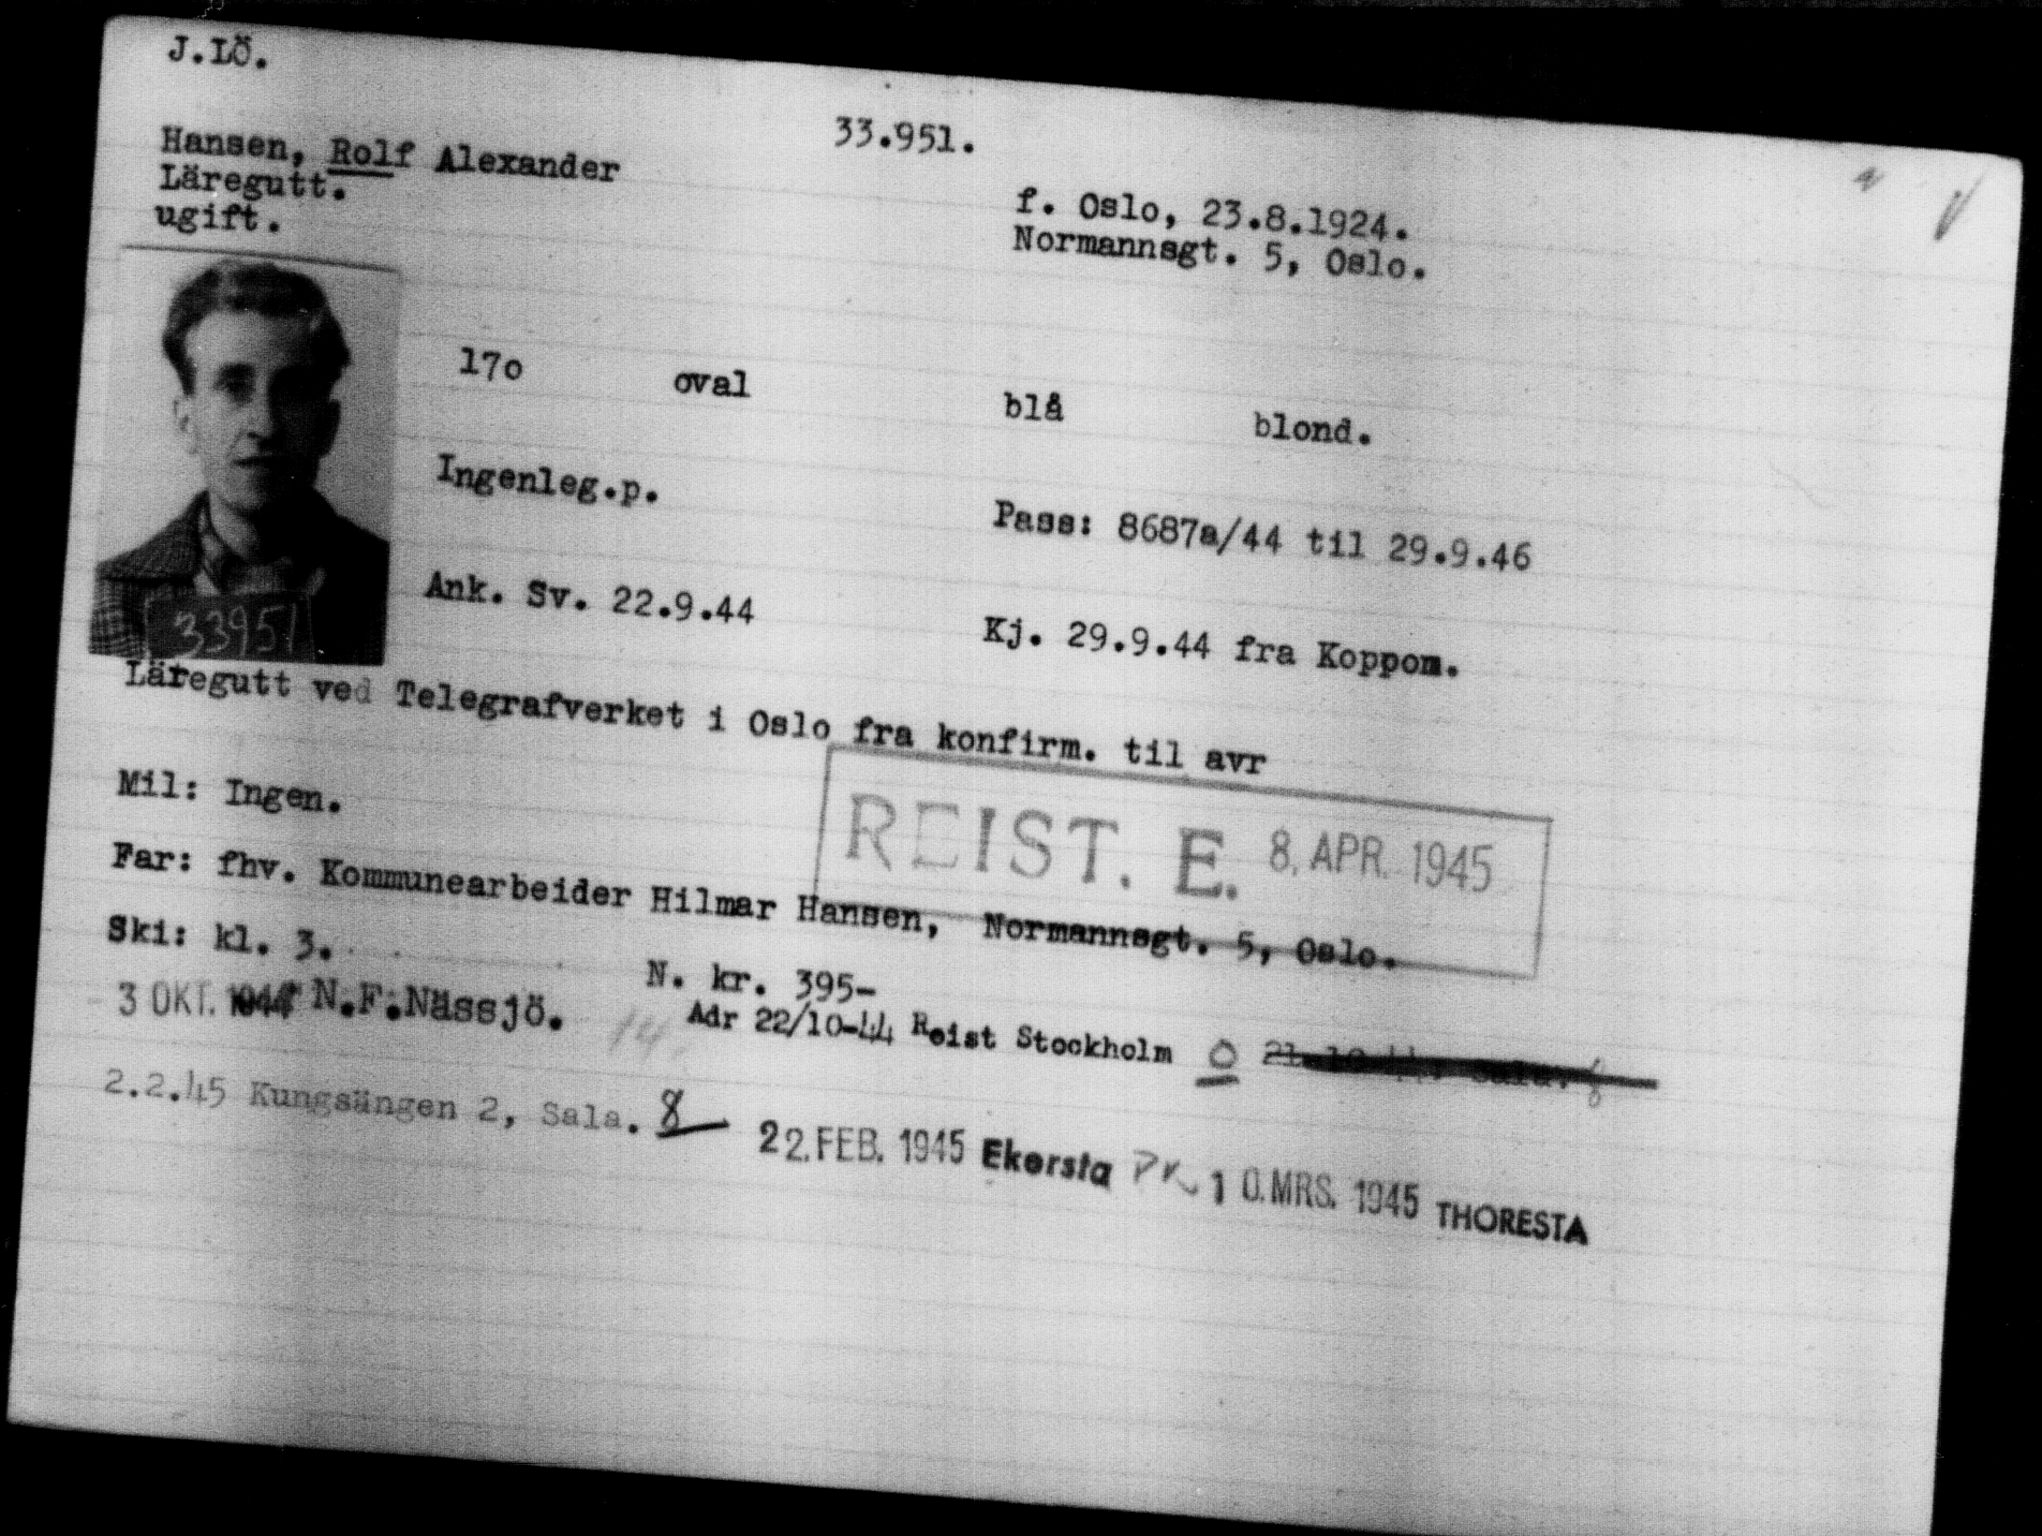 J.LÖ.
33.951.
Hansen, Rolf Alexander
Läregutt.
ugift.
f. Oslo, 23.8.1924.
Normannsgt. 5, Oslo.
17o oval blå blond.
Ingenleg.p.
Pass: 8687a/44 til 29.9.46
Ank. Sv. 22.9.44
Kj. 29.9.44 fra Koppom.
33951
Läregutt ved Telegrafverket i Oslo fra konfirm. til avr
Mil: Ingen.
REIST. E. 8. APR. 1945
Far: fhv. Kommunearbeider Hilmar Hansen, Normannsgt. 5, Oslo.
Ski: kl. 3.
N. kr. 395-
3 OKT. 1944 N.F.Nässjö. 14.
Adr 22/10-44 Reist Stockholm O
2.2.45 Kungsängen 2, Sala. 8
22. FEB. 1945 Ekersta PK 10. MRS. 1945 THORESTA